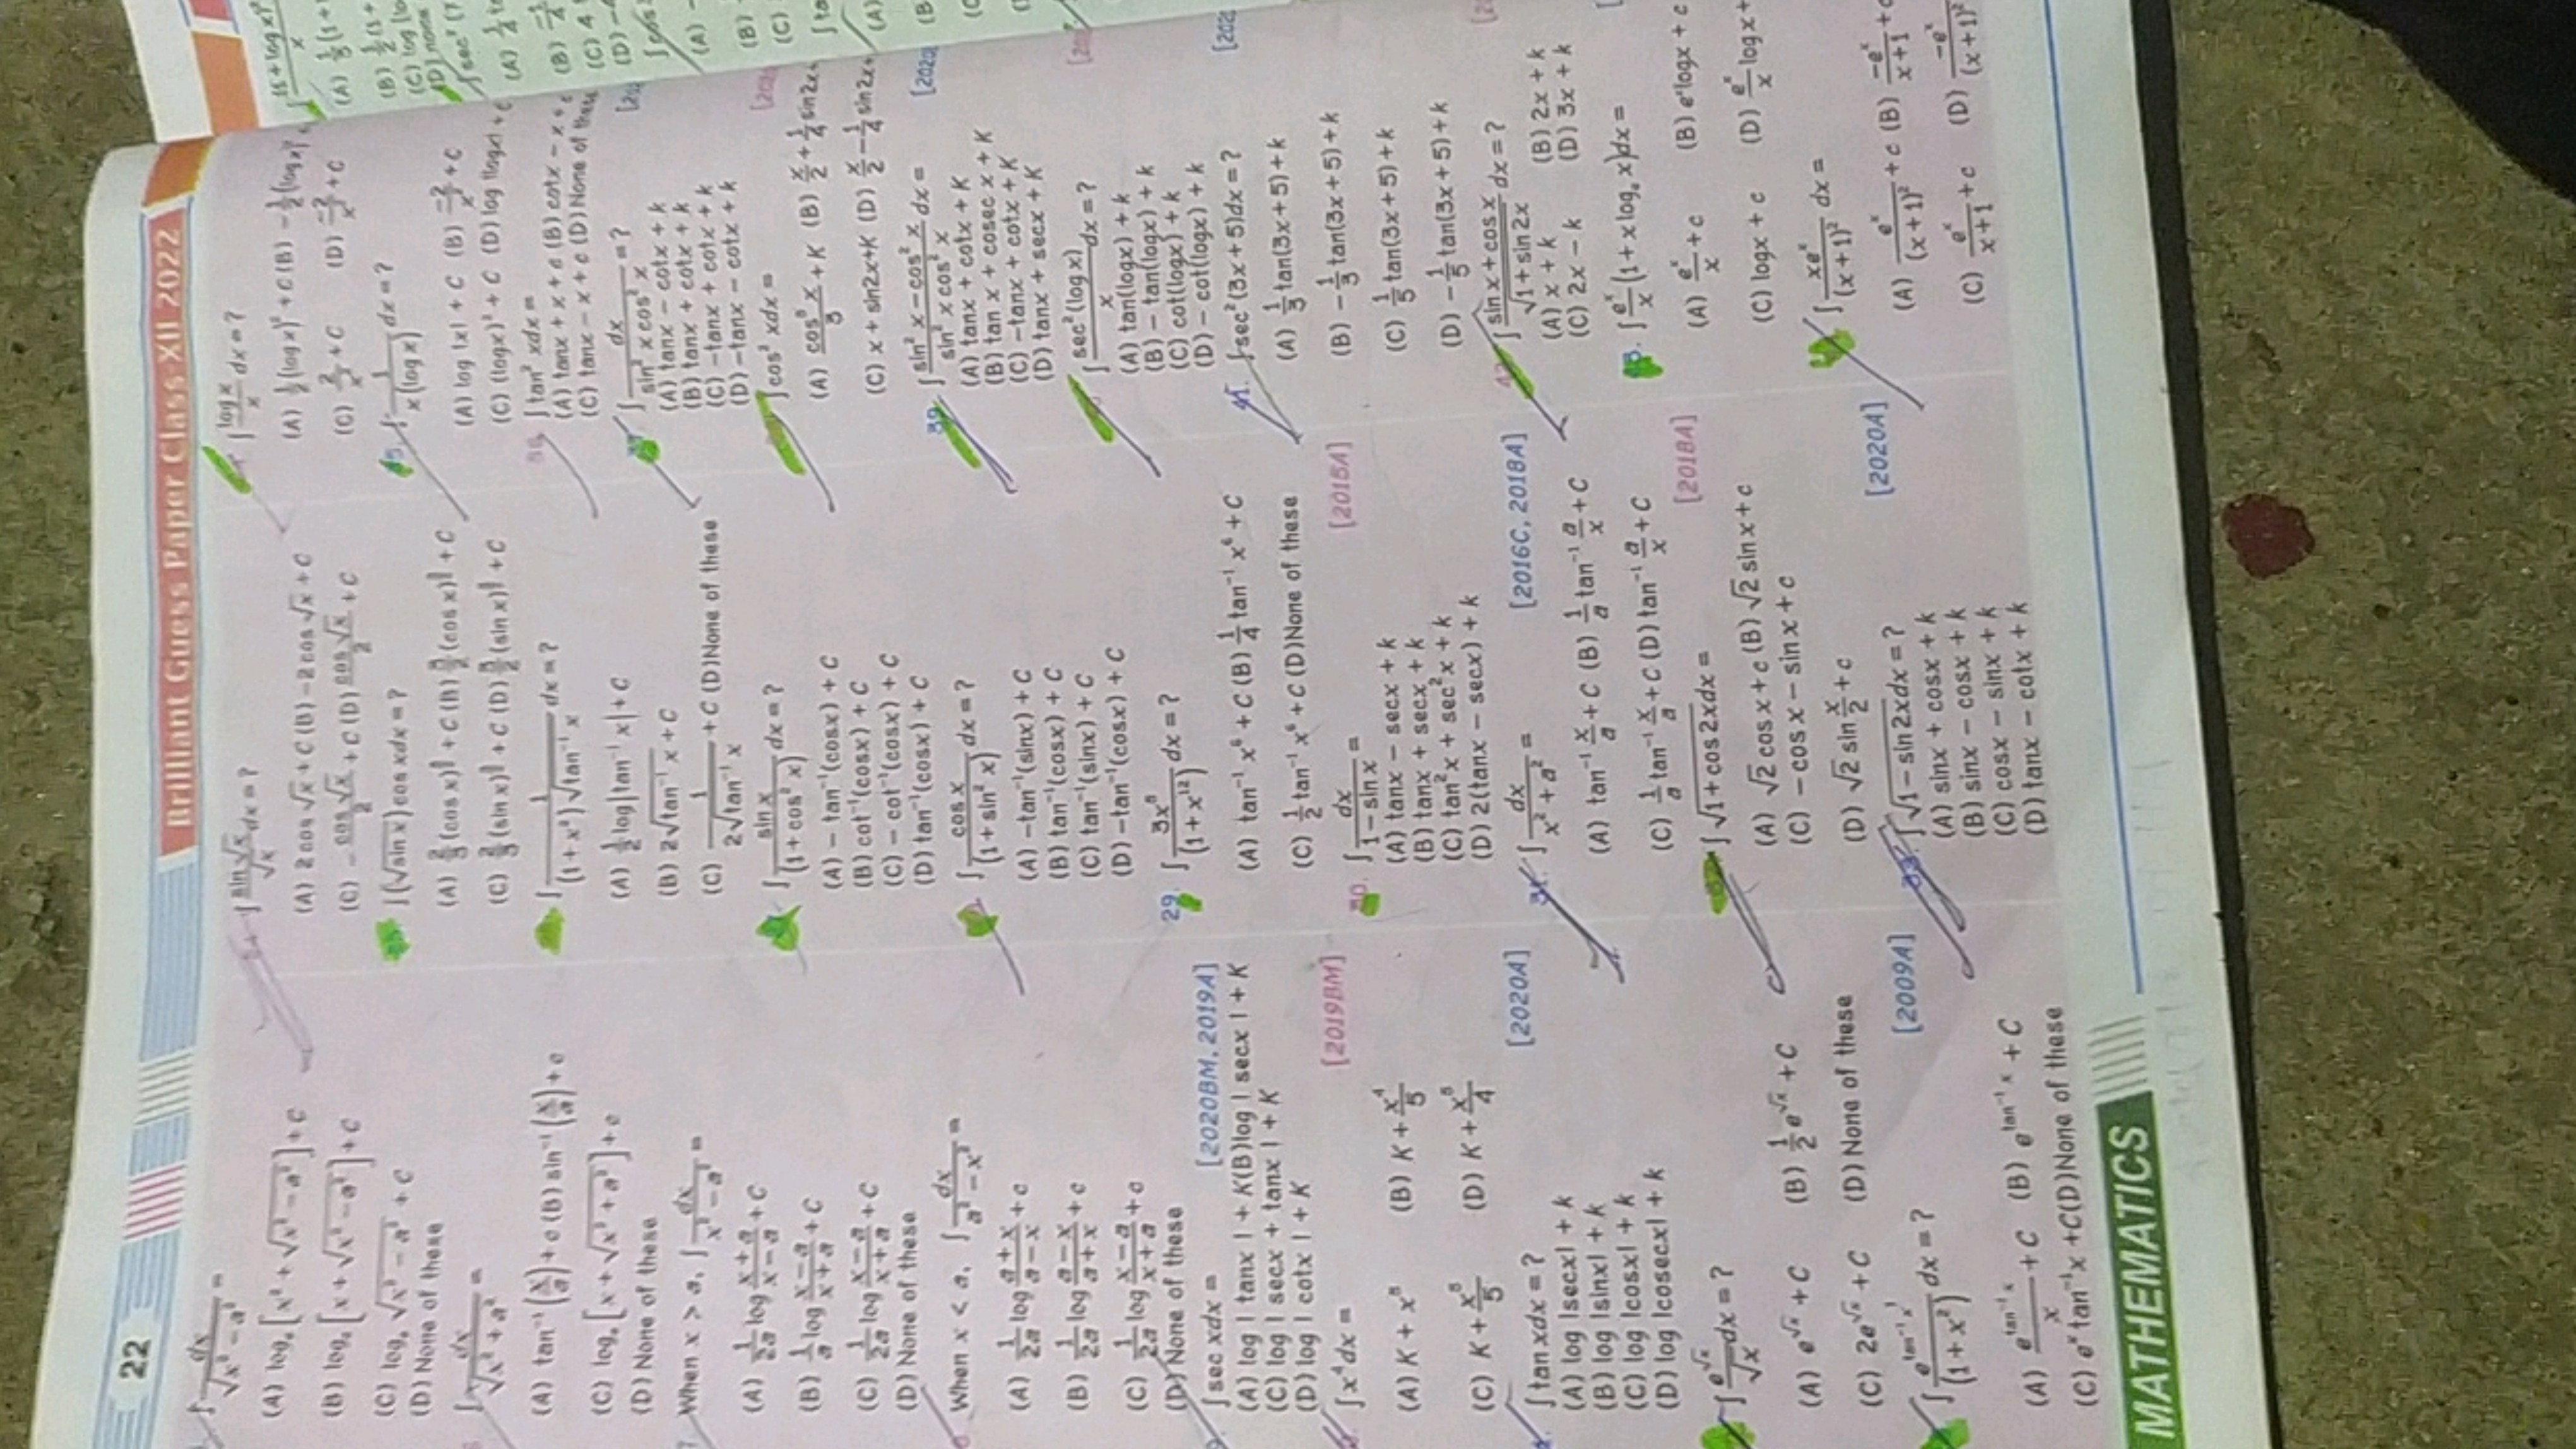 22
Brilliant Guess Paper Class XII 2022
∫ dx/√(x² − a²) =
(A) logₑ[x² + √(x² − a²)] + C
(B) logₑ[x + √(x² − a²)] + C
(C) logₑ √(x² − a²) + C
(D) None of these
∫ dx/√(x² + a²) =
(A) tan⁻¹(x/a) + c (B) sin⁻¹(x/a) + c
(C) logₑ[x + √(x² + a²)] + c
(D) None of these
When x > a, ∫ dx/(x² − a²) =
(A) 1/2a log (x + a)/(x − a) + C
(B) 1/a log (x − a)/(x + a) + C
(C) 1/2a log (x − a)/(x + a) + C
(D) None of these
When x < a, ∫ dx/(a² − x²) =
(A) 1/2a log (a + x)/(a − x) + c
(B) 1/2a log (a − x)/(a + x) + c
(C) 1/2a log (x − a)/(x + a) + c
(D) None of these
[2020BM, 2019A]
∫ sec xdx =
(A) log | tanx | + K(B)log | secx | + K
(C) log | secx + tanx | + K
(D) log | cotx | + K
[2019BM]
∫ x⁴ dx =
(A) K + x⁵ (B) K + x⁴/5
(C) K + x⁵/5 (D) K + x⁵/4
[2020A]
∫ tan xdx = ?
(A) log |secx| + k
(B) log |sinx| + k
(C) log |cosx| + k
(D) log |cosecx| + k
∫ e^√x/√x dx = ?
(A) e^√x + C (B) 1/2 e^√x + C
(C) 2e^√x + C (D) None of these
[2009A]
∫ e^(tan⁻¹ x)/(1 + x²) dx = ?
(A) e^(tan⁻¹ x)/x + C (B) e^(tan⁻¹ x) + C
(C) eˣ tan⁻¹x + C(D)None of these
∫ sin√x/√x dx = ?
(A) 2 cos √x + C (B) −2 cos √x + C
(C) − cos √x/2 + C (D) cos √x/2 + C
∫ (√sin x) cos xdx = ?
∫ 1/((1 + x²)√tan⁻¹ x) dx = ?
(A) 1/2 log|tan⁻¹ x| + C
(B) 2√tan⁻¹ x + C
(C) 1/(2√tan⁻¹ x) + C (D)None of these
∫ sin x/(1 + cos² x) dx = ?
(A) − tan⁻¹(cosx) + C
(B) cot⁻¹(cosx) + C
(C) − cot⁻¹(cosx) + C
(D) tan⁻¹(cosx) + C
∫ cos x/(1 + sin² x) dx = ?
(A) −tan⁻¹(sinx) + C
(B) tan⁻¹(cosx) + C
(C) tan⁻¹(sinx) + C
(D) −tan⁻¹(cosx) + C
29. ∫ 3x⁵/(1 + x¹²) dx = ?
(A) tan⁻¹ x⁶ + C (B) 1/4 tan⁻¹ x⁶ + C
(C) 1/2 tan⁻¹ x⁶ + C (D)None of these
[2015A]
30. ∫ dx/(1 − sin x) =
(A) tanx − secx + k
(B) tanx + secx + k
(C) tan²x + sec²x + k
(D) 2(tanx − secx) + k
[2016C, 2018A]
31. ∫ dx/(x² + a²) =
(A) tan⁻¹ x/a + C (B) 1/a tan⁻¹ a/x + C
(C) 1/a tan⁻¹ x/a + C (D) tan⁻¹ a/x + C
[2018A]
∫ √(1 + cos 2x)dx =
(A) √2 cos x + c (B) √2 sin x + c
(C) − cos x − sin x + c
(D) √2 sin x/2 + c
[2020A]
33. ∫ √(1 − sin 2x)dx = ?
(A) sinx + cosx + k
(B) sinx − cosx + k
(C) cosx − sinx + k
(D) tanx − cotx + k
∫ log x/x dx = ?
(A) 1/2 (log x)² + C (B) − 1/2 (log x)²
(C) 2/x² + C (D) −2/x² + C
∫ 1/(x(log x)) dx = ?
(A) log |x| + C (B) −2/x² + C
(C) (logx)² + C (D) log |logx| + c
∫ tan² xdx =
(A) tanx + x + c (B) cotx − x + c
(C) tanx − x + c (D)None of these
∫ dx/(sin² x cos² x) = ?
(A) tanx − cotx + k
(B) tanx + cotx + k
(C) −tanx + cotx + k
(D) −tanx − cotx + k
∫ cos² xdx =
(B) x/2 + 1/4 sin2x+
(C) x + sin2x+K (D) x/2 − 1/4 sin2x+
39. ∫ (sin² x − cos² x)/(sin² x cos² x) dx =
(A) tanx + cotx + K
(B) tan x + cosec x + K
(C) −tanx + cotx + K
(D) tanx + secx + K
∫ sec²(log x)/x dx = ?
(A) tan(logx) + k
(B) − tan(logx) + k
(C) cot(logx) + k
(D) − cot(logx) + k
41. ∫ sec²(3x + 5)dx = ?
(A) 1/3 tan(3x + 5) + k
(B) − 1/3 tan(3x + 5) + k
(C) 1/5 tan(3x + 5) + k
(D) − 1/5 tan(3x + 5) + k
∫ (sin x + cos x)/√(1 + sin 2x) dx = ?
(A) x + k (B) 2x + k
(C) 2x − k (D) 3x + k
∫ eˣ/x (1 + x logₑ x)dx =
(A) eˣ/x + c (B) eˣlogx + c
(C) logx + c (D) eˣ/x logx+
∫ xeˣ/(x + 1)² dx =
(A) eˣ/(x + 1)² + c (B) −eˣ/(x + 1) + c
(C) eˣ/(x + 1) + c (D) −eˣ/(x + 1)²
MATHEMATICS